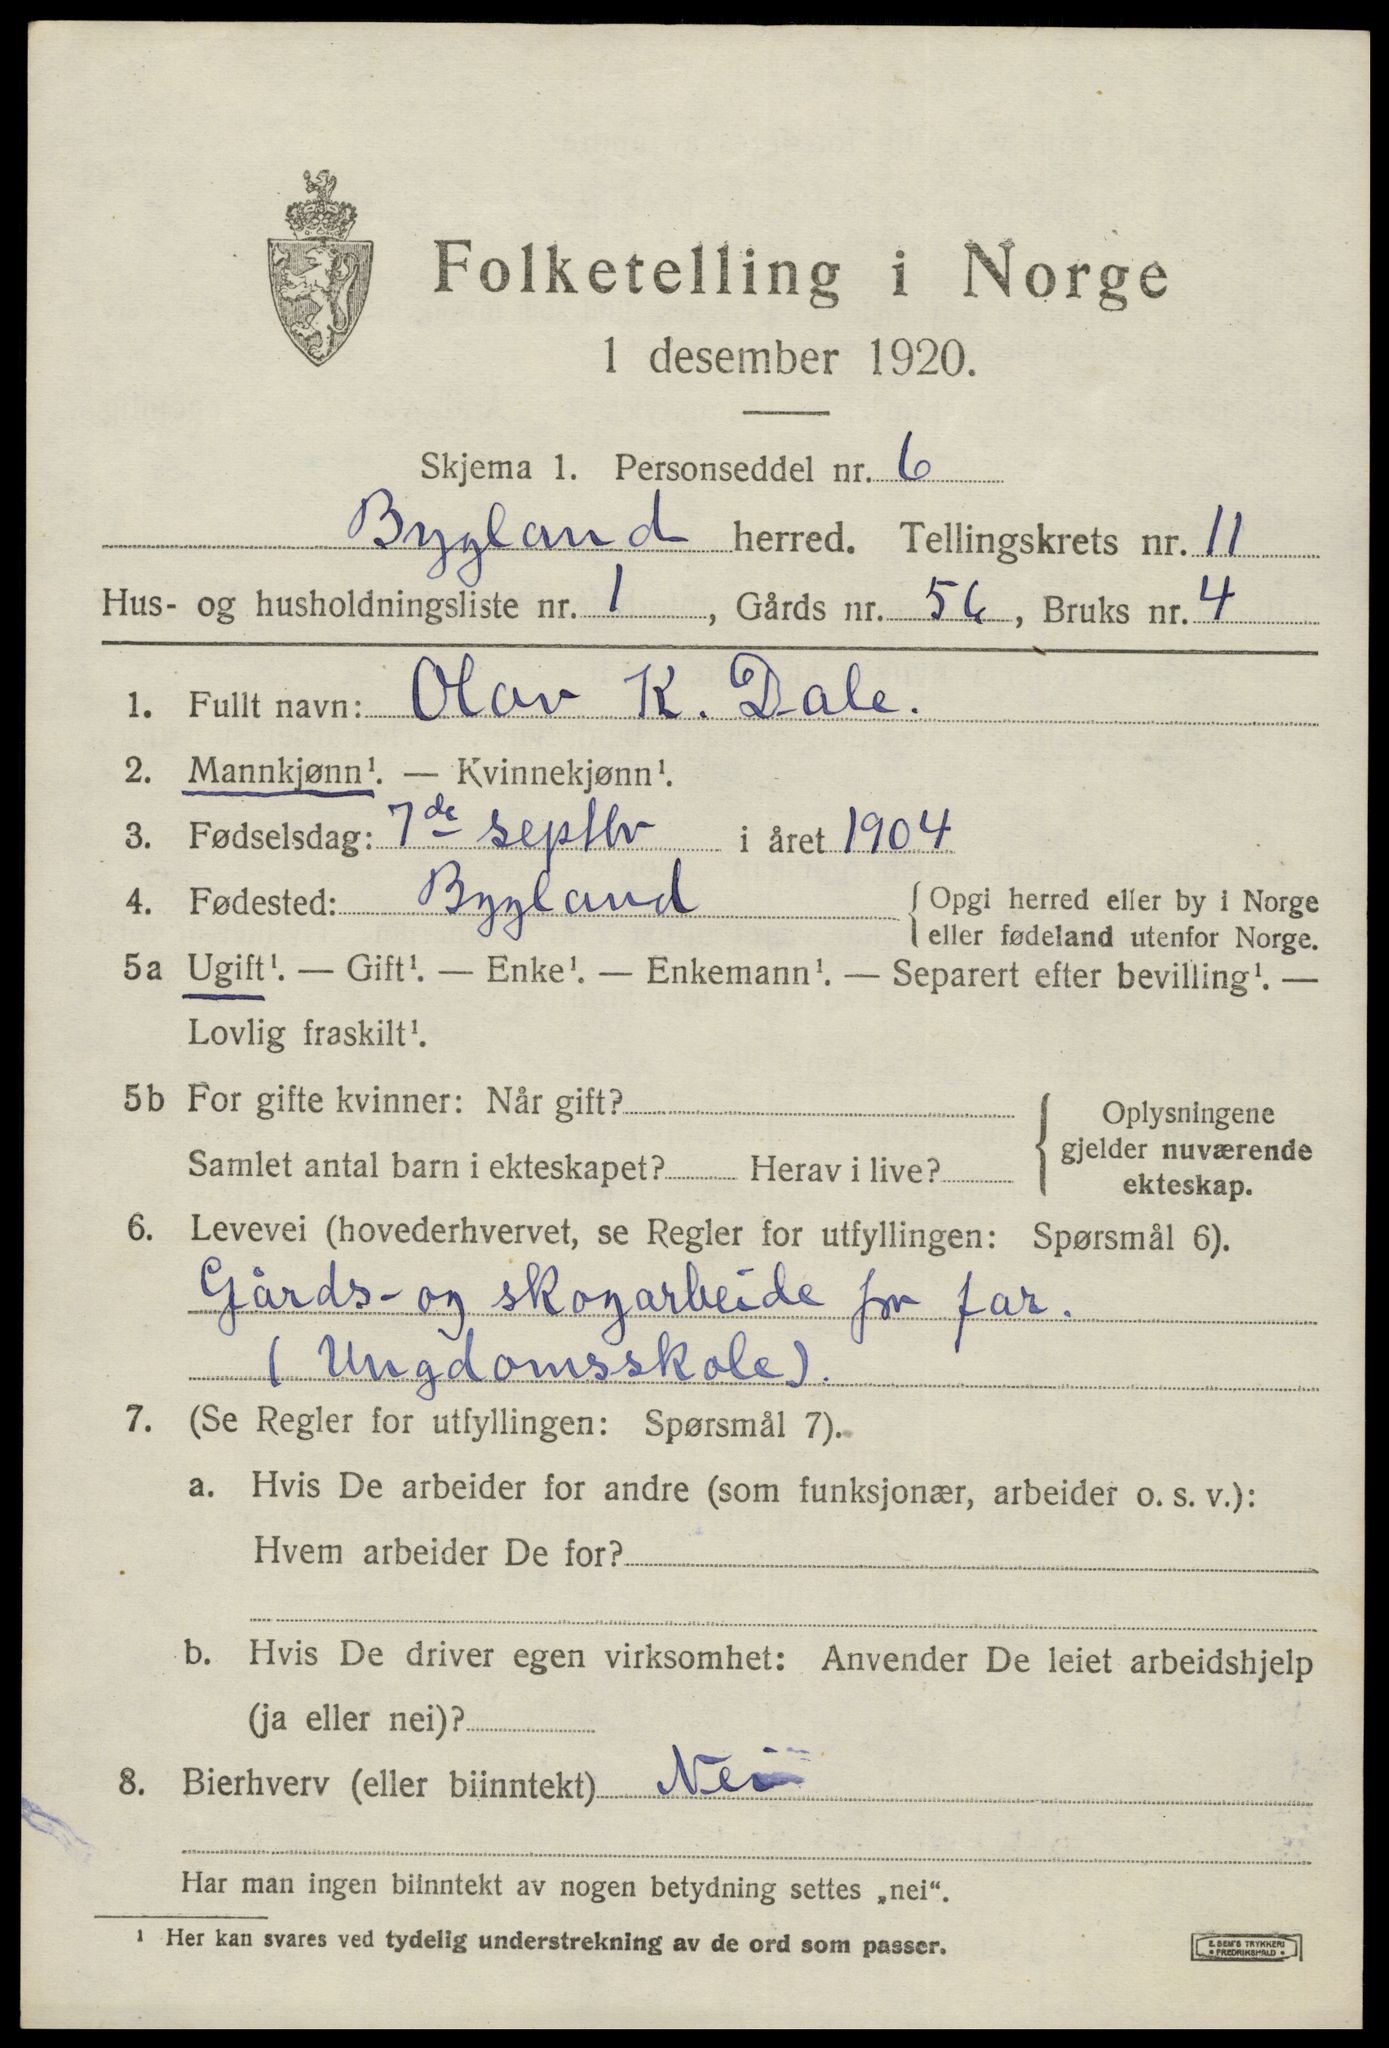 Folketelling i Norge
1 desember 1920.
Skjema 1. Personseddel nr. 6
Bygland herred. Tellingskrets nr. 11
Hus- og husholdningsliste nr. 1, Gårds nr. 56, Bruks nr. 4
1. Fullt navn: Olav K. Dale.
2. Mannkjønn¹. — Kvinnekjønn¹.
3. Fødselsdag: 7de septbr i året 1904
4. Fødested: Bygland { Opgi herred eller by i Norge
eller fødeland utenfor Norge.
5a Ugift¹. — Gift¹. — Enke¹. — Enkemann¹. — Separert efter bevilling¹. —
Lovlig fraskilt¹.
5b For gifte kvinner: Når gift?
Samlet antal barn i ekteskapet? Herav i live?
{ Oplysningene
gjelder nuværende
ekteskap.
6. Levevei (hovederhvervet, se Regler for utfyllingen: Spørsmål 6).
Gårds- og skogarbeide for far.
(Ungdomsskole).
7. (Se Regler for utfyllingen: Spørsmål 7).
a. Hvis De arbeider for andre (som funksjonær, arbeider o. s. v.):
Hvem arbeider De for?
b. Hvis De driver egen virksomhet: Anvender De leiet arbeidshjelp
(ja eller nei)?
8. Bierhverv (eller biinntekt) Nei
Har man ingen biinntekt av nogen betydning settes „nei“.
¹ Her kan svares ved tydelig understrekning av de ord som passer.
E. SEM'S TRYKKERI
• FREDRIKSHALD •